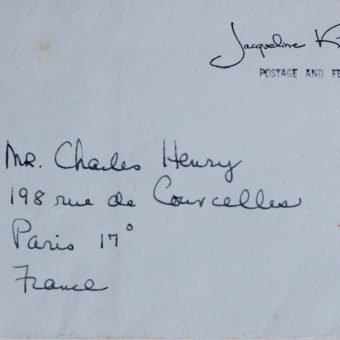 Jacqueline K
POSTAGE AND FE
Mr. Charles Henry
198 rue de Courcelles
Paris 17°
France